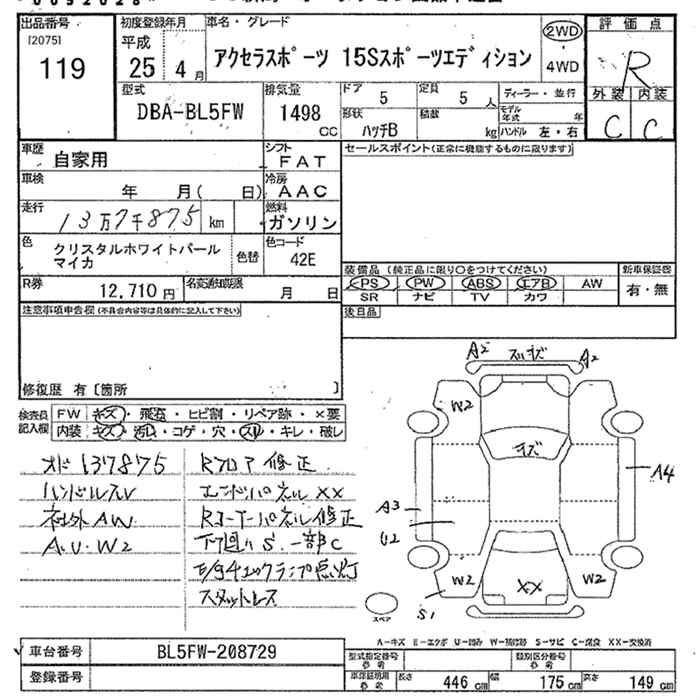 出品番号
[2075]
119
初度登録年月
平成
25年 4月
車名・グレード
アクセラスポーツ 15Sスポーツエディション
2WD
4WD
評価点
R
外装 内装
C C
型式
DBA-BL5FW
排気量
1498
cc
ドア
5
定員
5人
形状
ハッチB
積載
kg
ディーラー・並行
モデル年式 年
ハンドル 左・右
車歴
自家用
シフト
FAT
セールスポイント(正常に機能するものに限ります)
車検
年 月( 日)
冷房
AAC
走行
13万7千875 km
燃料
ガソリン
色
クリスタルホワイトパールマイカ
色替
色コード
42E
装備品(純正品に限り○をつけてください)
新車保証書
PS PW ABS エアB AW
SR ナビ TV カワ
有・無
R券
12,710円
名変通知期限
月 日
後日品
注意事項申告欄(不具合内容等は具体的に記入して下さい)
修復歴 有〔箇所 〕
検査員記入欄
FW キズ・飛石・ヒビ割・リペア跡・×要
内装 キズ・汚れ・コゲ・穴・スレ・キレ・破レ
オド137875
ハンドルスレ
社外AW
A.U.W2
Rフロア修正
エンドパネルXX
Rコーナーパネル修正
下廻りS.一部C
E/gチェックランプ点灯
スタットレス
A2 スリキズ A2
W2
キズ
A4
A3
U2
W2
XX
W2
S1
スペア
A-キズ E-エクボ U-凹み W-補修跡 S-サビ C-腐食 XX-交換済
車台番号
BL5FW-208729
登録番号
型式指定番号 参考
類別区分番号 参考
車庫証明用 参考
長さ 446cm
幅 175cm
高さ 149cm